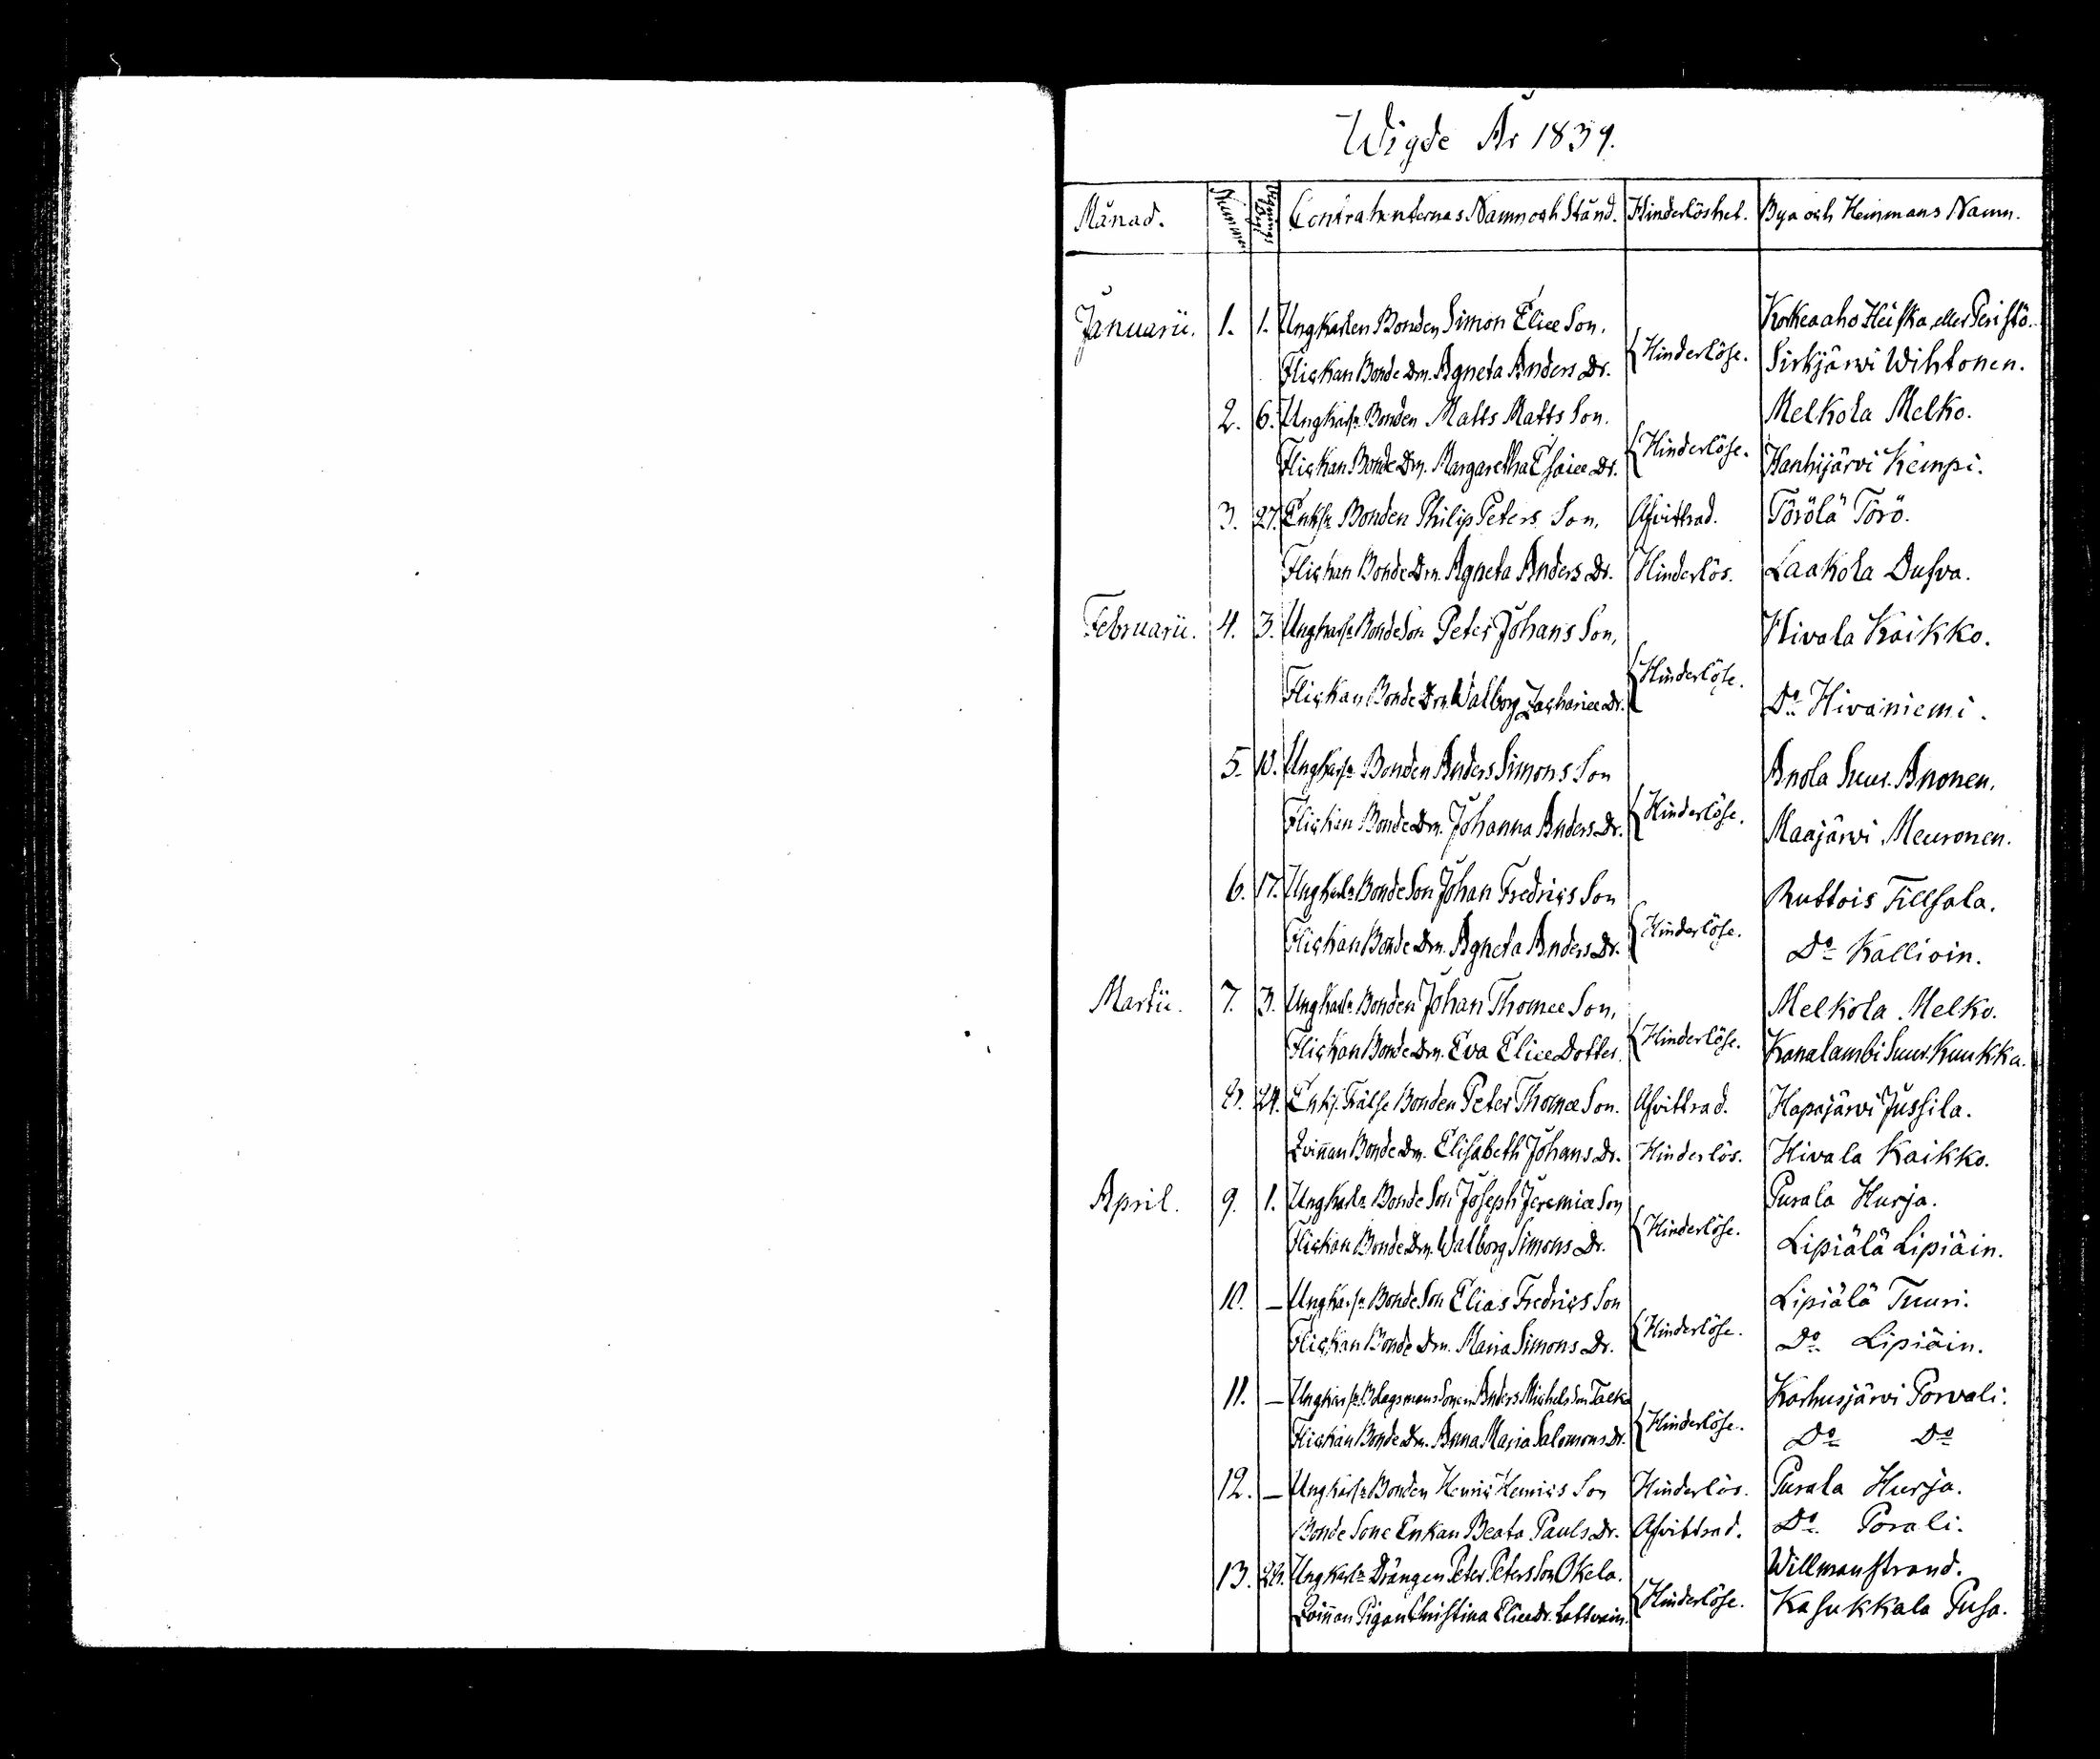 Wigde År 1839.
Månad. Nummer Vignings Dag Contrahenternas Namn och Stånd. Hinderlöshet. Bya och Hemmans Namn.
Januarii. 1. 1. Ungkarlen Bonden Simon Eliæ Son. Kokkeaaho Heiska eller Peristö.
Flickan Bonde Drn. Agneta Anders Dr. Hinderlöse. Sirkjärvi Wihtonen.
2. 6. Ungkarln Bonden Matts Matts Son. Melkola Melko.
Flickan Bonde Drn. Margaretha Esaiæ Dr. Hinderlöse. Hanhijärvi Kemppi.
3. 27. Enkln Bonden Philip Peters Son. Afvittrad. Törölä Törö.
Flickan Bonde Drn. Agneta Anders Dr. Hinderlös. Laakola Dufva.
Februarii. 4. 3. Ungkarln Bonde Son Peter Johans Son, Hivala Kaikko.
Flickan Bonde Drn. Walborg Zachariæ Dr. Hinderlöse. Do Hivaniemi.
5. 10. Ungkarln Bonden Anders Simons Son Anola Suur. Anonen.
Flickan Bonde Drn. Johanna Anders Dr. Hinderlöse. Maajärvi Meuronen.
6. 17. Ungkarln Bonde Son Johan Fredrics Son Ruttois Tillsala.
Flickan Bonde Drn. Agneta Anders Dr. Hinderlöse. Do Kallioin.
Martii. 7. 3. Ungkarln Bonden Johan Thomæ Son, Melkola Melko.
Flickan Bonde Drn. Eva Eliæ Dotter. Hinderlöse. Kanalambi Suur. Kuukka.
8. 24. Enkj. Frälse Bonden Peter Thomæ Son. Afvittrad. Hapajärvi Jussila.
Qvinnan Bonde Drn. Elisabeth Johans Dr. Hinderlös. Hivala Kaikko.
April. 9. 1. Ungkarln Bonde Son Joseph Jeremiæ Son Purala Hurja.
Flickan Bonde Drn. Walborg Simons Dr. Hinderlöse. Lipiälä Lipiäin.
10. — Ungkarln Bonde Son Elias Fredrics Son Lipiälä Tuuri.
Flickan Bonde Drn. Maria Simons Dr. Hinderlöse. Do Lipiäin.
11. — Ungkarln Bolagsmans Sonen Anders Michels Son Talka Karhusjärvi Porvali.
Flickan Bonde Drn. Anna Maria Salomons Dr. Hinderlöse. Do Do
12. — Ungkarln Bonden Henric Henrics Son Hinderlös. Purala Hurja.
Bonde Sone Enkan Beata Pauls Dr. Afvittrad. Do Porali.
13. 28. Ungkarln Drängen Peter Peters Son Okela. Willmanstrand.
Qvinnan Pigan Christina Eliæ Dr. Lattvain. Hinderlöse. Kasukkala Pusa.